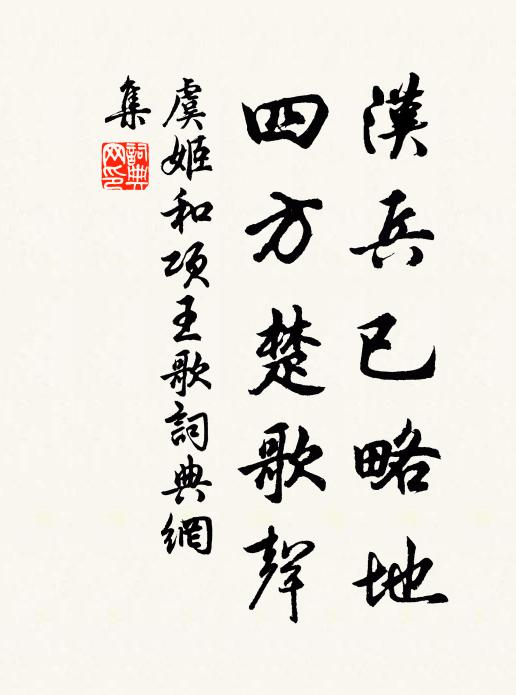 漢兵已略地
四方楚歌聲
虞姬和項王歌詞典網
集
詞典
网印